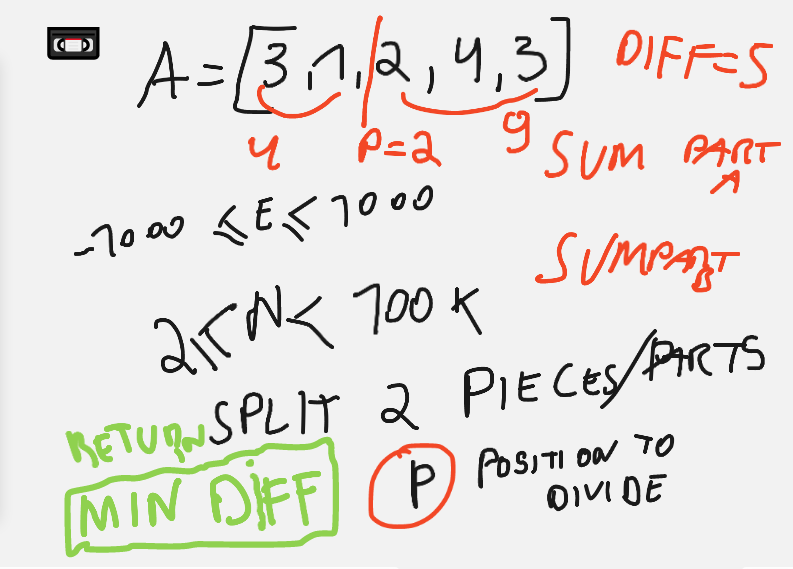 A=[3,1,2,4,3]
DIFF=5
4
P=2
9
SUM PART A
-1000 ≤ E ≤ 1000
SUM PART B
2 ≤ N < 100K
SPLIT 2 PIECES/PARTS
RETURN
MIN DIFF
P
POSITION TO
DIVIDE